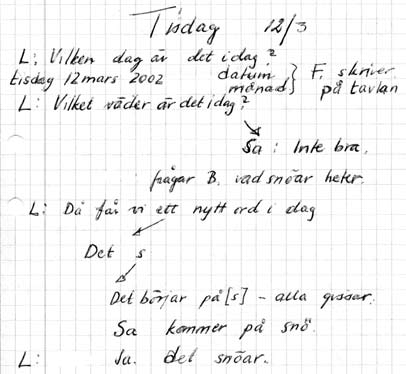 Tisdag 12/3
L: Vilken dag är det idag?
tisdag 12 mars 2002 datum } F. skriver
månad på tavlan
L: Vilket väder är det idag?
Sa: Inte bra.
frågar B. vad snöar heter.
L: Då får vi ett nytt ord i dag
Det s
Det börjar på [s] - alla gissar.
Sa kommer på snö.
L: Ja. det snöar.